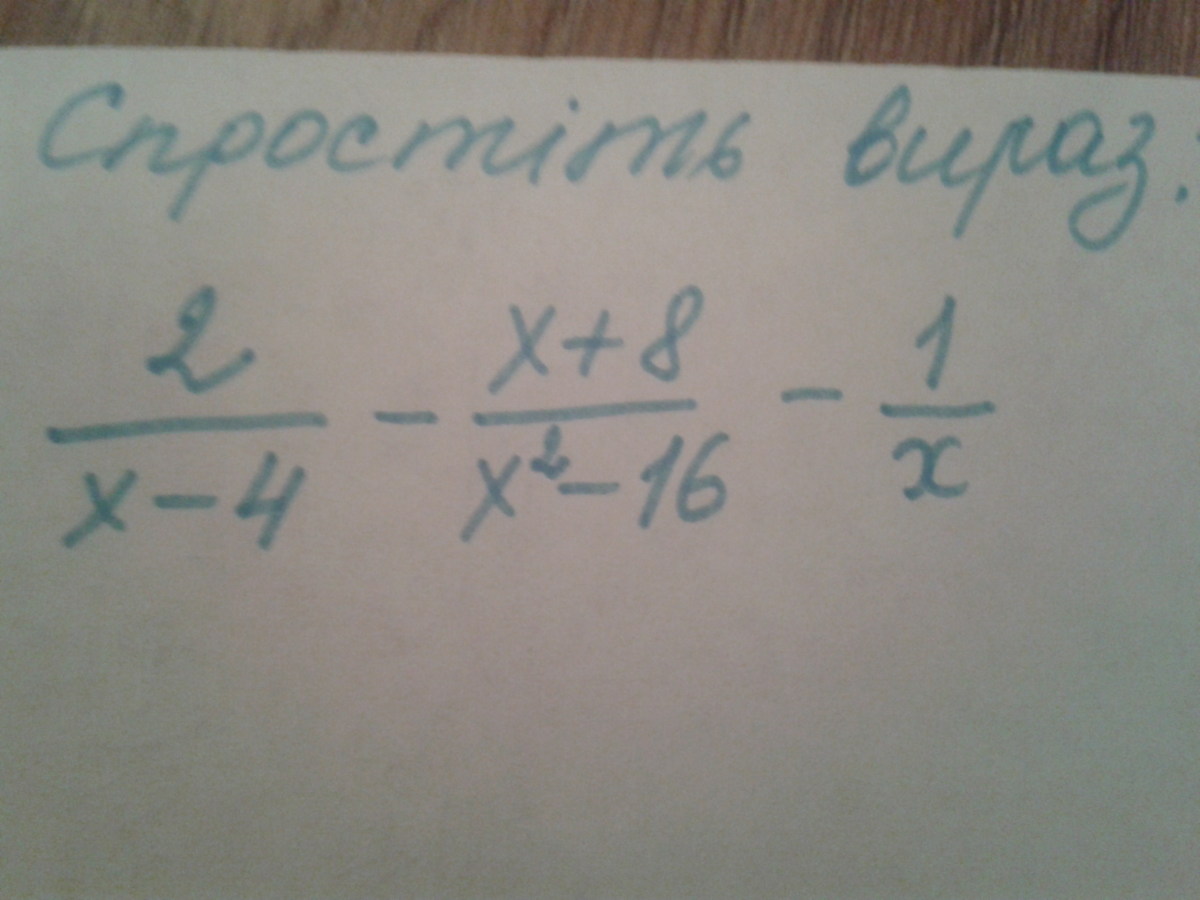 Спростіть вираз:
2/(x-4) - (x+8)/(x²-16) - 1/x